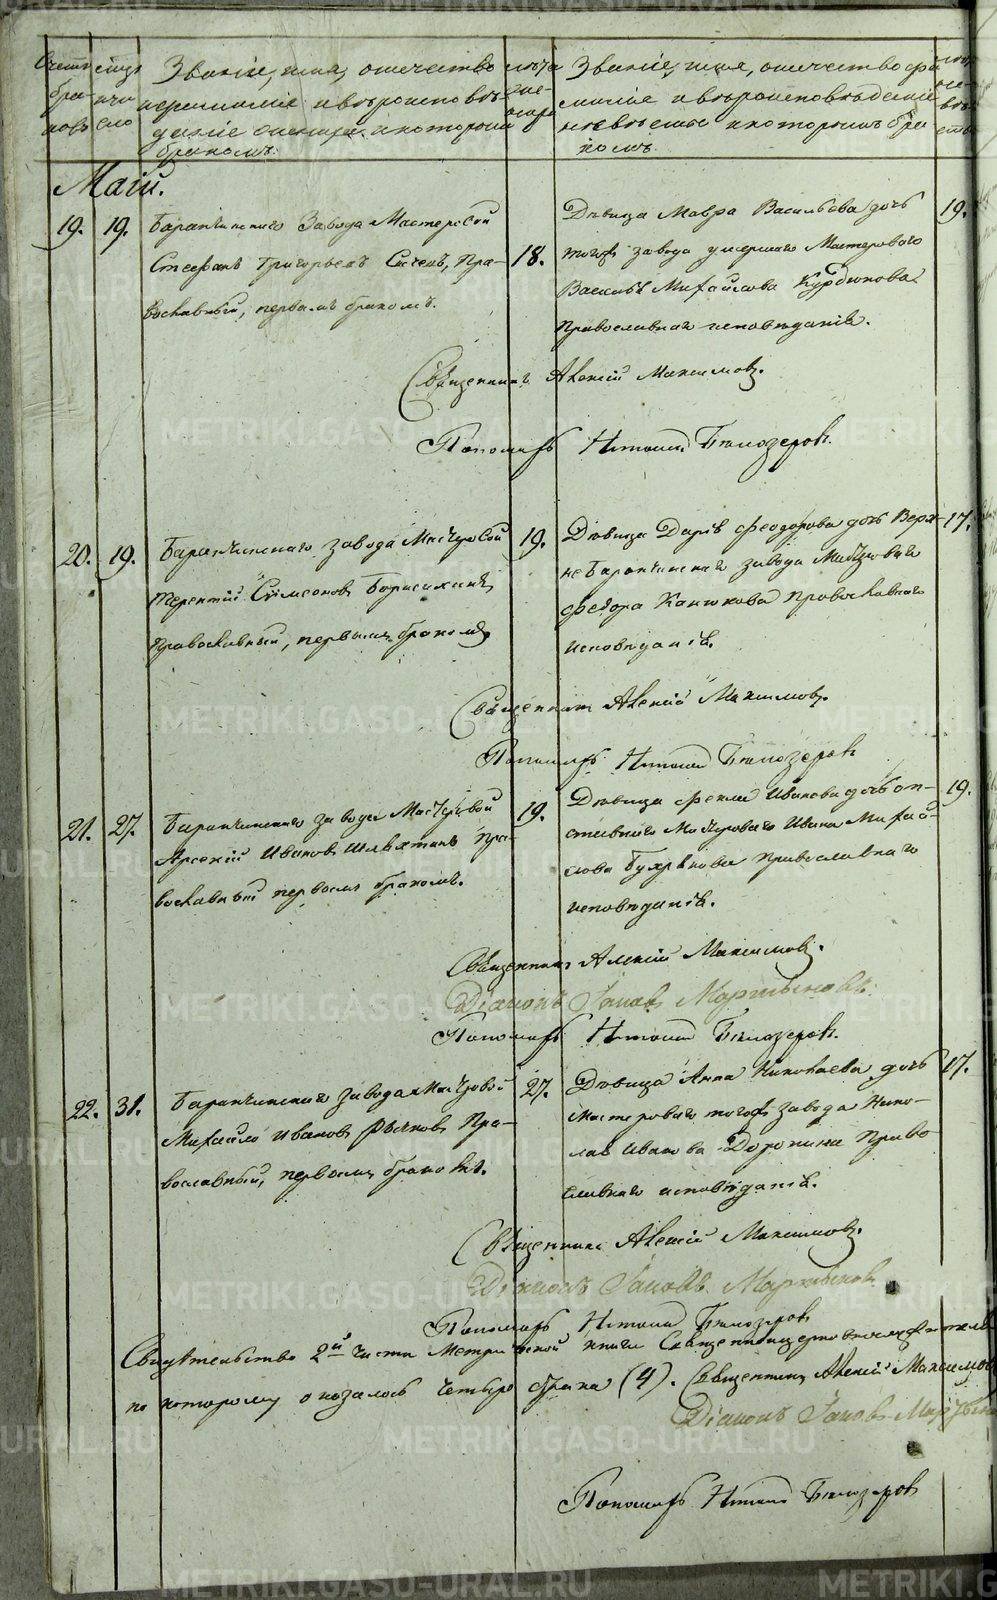 Счетъ браковъ
Мѣсяцъ и число
Званіе, имя, отчество
фамиліе и вѣроисповѣ-
даніе жениха, и которымъ
бракомъ.
лѣта
жениха
Званіе, имя, отчество фа
миліе и вѣроисповѣданіе
невѣсты и которымъ бра
комъ.
Маій.
19. 19. Баранчинскаго Завода Мастеровой
Стефанъ Григорьевъ Сычевъ, Пра-
вославный, первымъ бракомъ.
18.
Дѣвица Мавра Васильева дочь
тогоже завода умершаго Мастероваго
Василья Михайлова Курдюкова
Православнаго исповѣданія.
19.
Священникъ Алексій Максимовъ.
Пономарь Бѣлозеровъ.
20. 19. Баранчинскаго завода Мастеровой
Терентій Симеоновъ
Православный, первымъ бракомъ
19.
Дѣвица Дарья Феодорова дочь Верх-
не Баранчинскаго завода Мастероваго
Федора Канюкова Православнаго
исповѣданія.
17.
Священникъ Алексій Максимовъ.
Пономарь Бѣлозеровъ
21. 27. Баранчинскаго завода Мастеровой
Арсеній Ивановъ Шляхтинъ Пра-
вославный первымъ бракомъ.
19.
Дѣвица Фекла Иванова дочь от-
ставнаго Мастероваго Ивана Михай-
лова Православнаго
исповѣданія.
19.
Священникъ Алексій Максимовъ.
Діаконъ Іаковъ Мартыновъ.
Пономарь Бѣлозеровъ.
22. 31. Баранчинскаго завода Мастеровой
Михайло Ивановъ Рычковъ Пра-
вославный, первымъ бракомъ.
27.
Дѣвица Анна Николаева дочь
мастероваго тогоже завода Нико-
лая Иванова Доронина Право
славнаго исповѣданія.
17.
Священникъ Алексій Максимовъ.
Діаконъ Іаковъ Мартыновъ.
Пономарь Бѣлозеровъ
Свидѣтельство 2й части Метрической книги Священноцерковнослужителями
по которому оказалось четыре брака (4). Священникъ Алексій Максимовъ
Діаконъ Іаковъ Мартыновъ
Пономарь Бѣлозеровъ
METRIKI.GASO-URAL.RU